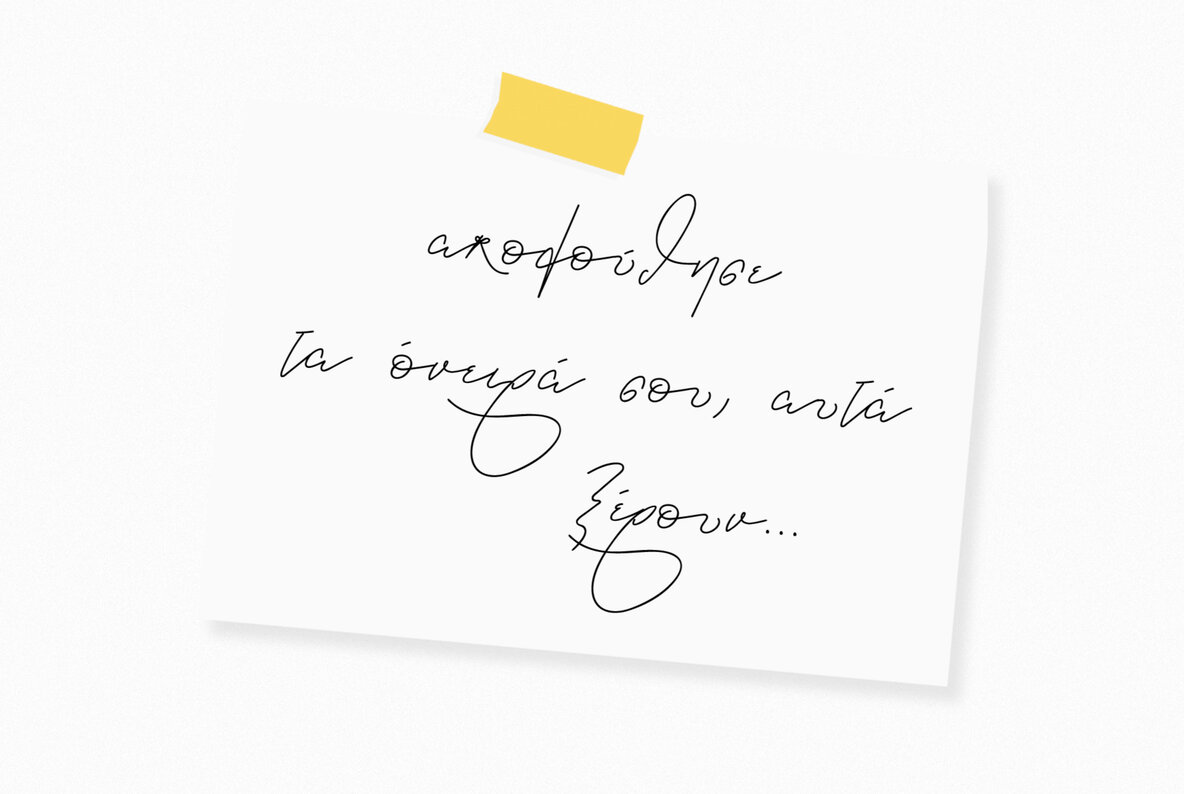 ακολούθησε
τα όνειρά σου, αυτά
ξέρουν...